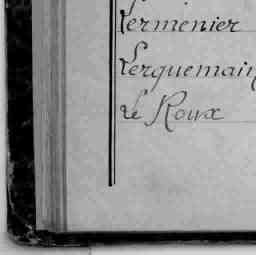 Lermenier
Lerquemain
Le Roux